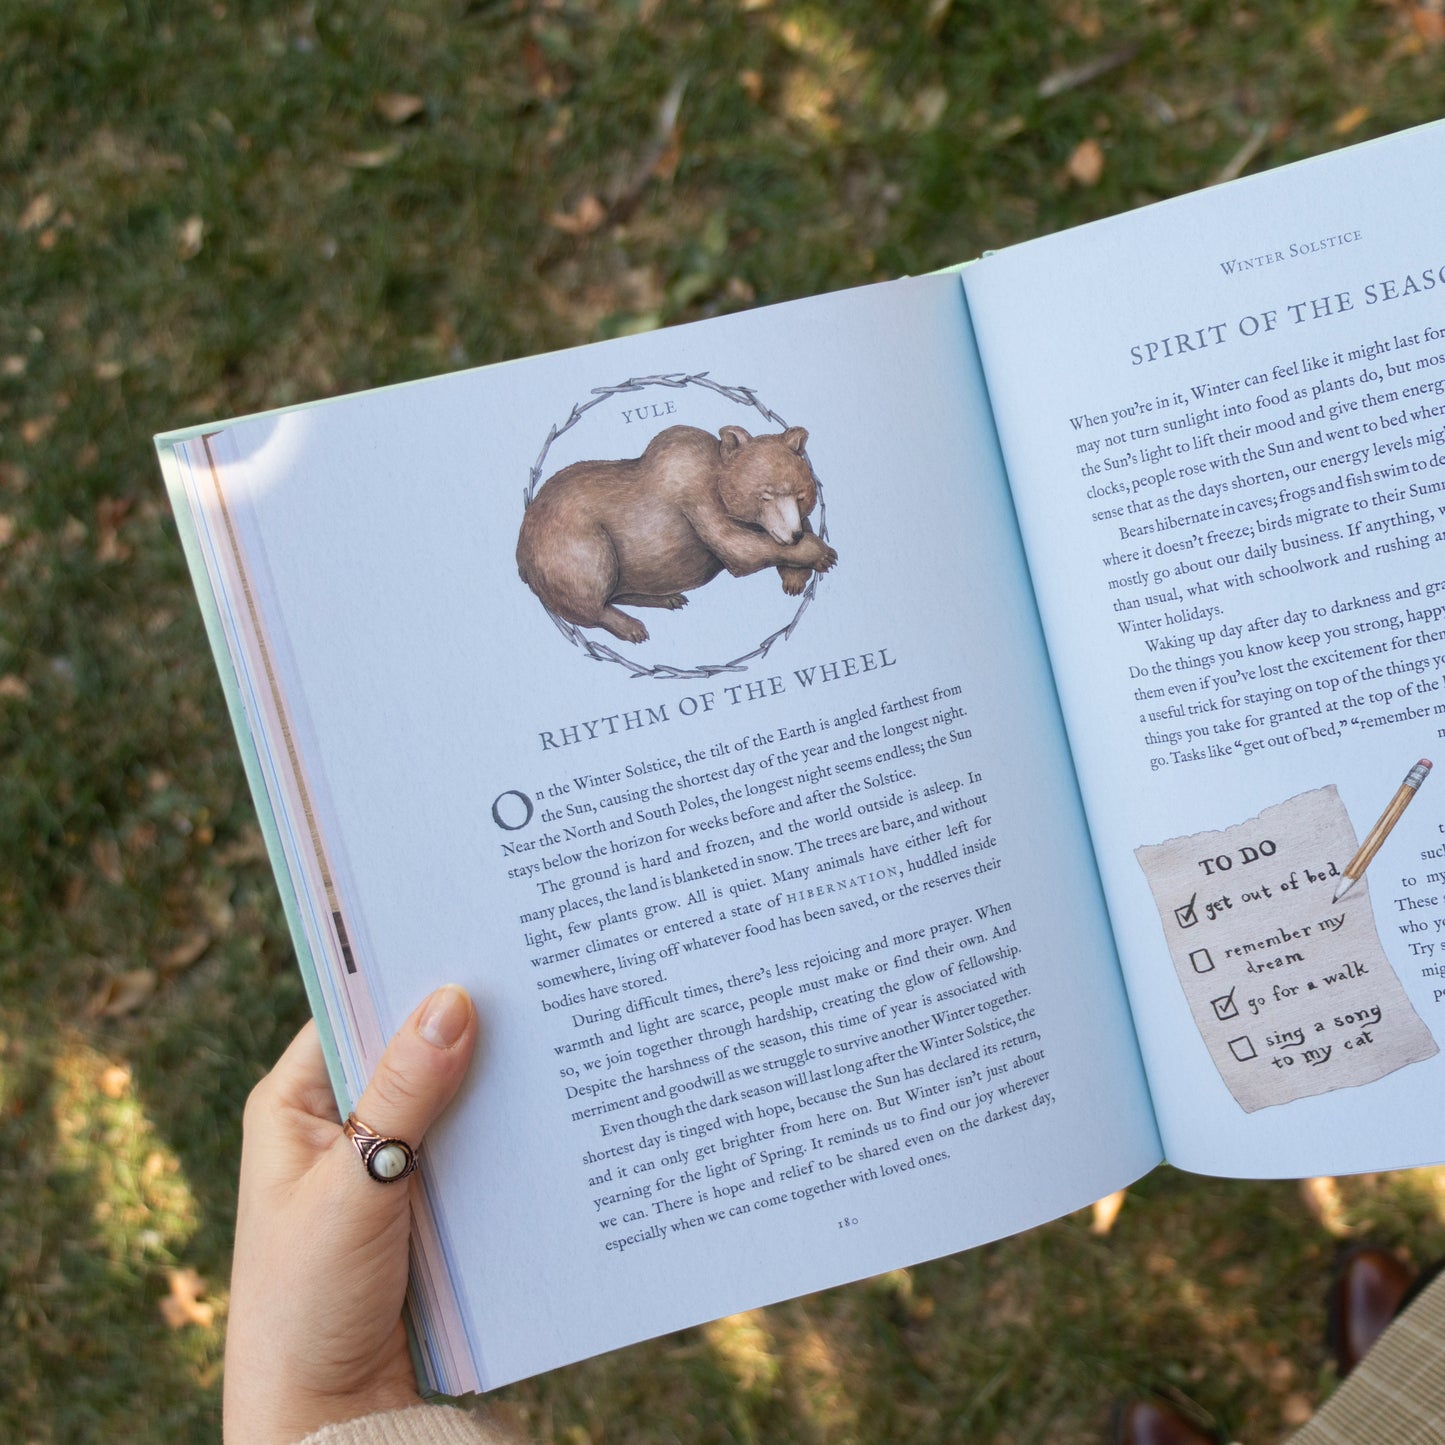 YULE
RHYTHM OF THE WHEEL
On the Winter Solstice, the tilt of the Earth is angled farthest from
the Sun, causing the shortest day of the year and the longest night.
Near the North and South Poles, the longest night seems endless; the Sun
stays below the horizon for weeks before and after the Solstice.
The ground is hard and frozen, and the world outside is asleep. In
many places, the land is blanketed in snow. The trees are bare, and without
light, few plants grow. All is quiet. Many animals have either left for
warmer climates or entered a state of HIBERNATION, huddled inside
somewhere, living off whatever food has been saved, or the reserves their
bodies have stored.
During difficult times, there's less rejoicing and more prayer. When
warmth and light are scarce, people must make or find their own. And
so, we join together through hardship, creating the glow of fellowship.
Despite the harshness of the season, this time of year is associated with
merriment and goodwill as we struggle to survive another Winter together.
Even though the dark season will last long after the Winter Solstice, the
shortest day is tinged with hope, because the Sun has declared its return,
and it can only get brighter from here on. But Winter isn't just about
yearning for the light of Spring. It reminds us to find our joy wherever
we can. There is hope and relief to be shared even on the darkest day,
especially when we can come together with loved ones.
180
WINTER SOLSTICE
SPIRIT OF THE SEASO
When you're in it, Winter can feel like it might last for
may not turn sunlight into food as plants do, but mos
the Sun's light to lift their mood and give them energ
clocks, people rose with the Sun and went to bed wher
sense that as the days shorten, our energy levels mig
Bears hibernate in caves; frogs and fish swim to de
where it doesn't freeze; birds migrate to their Sum
mostly go about our daily business. If anything, w
than usual, what with schoolwork and rushing a
Winter holidays.
Waking up day after day to darkness and gra
Do the things you know keep you strong, happy
them even if you've lost the excitement for then
a useful trick for staying on top of the things y
things you take for granted at the top of the
go. Tasks like "get out of bed," "remember m
TO DO
get out of bed
remember my
dream
go for a walk
sing a song
to my cat
t
such
to my
These
who y
Try s
mig
pe